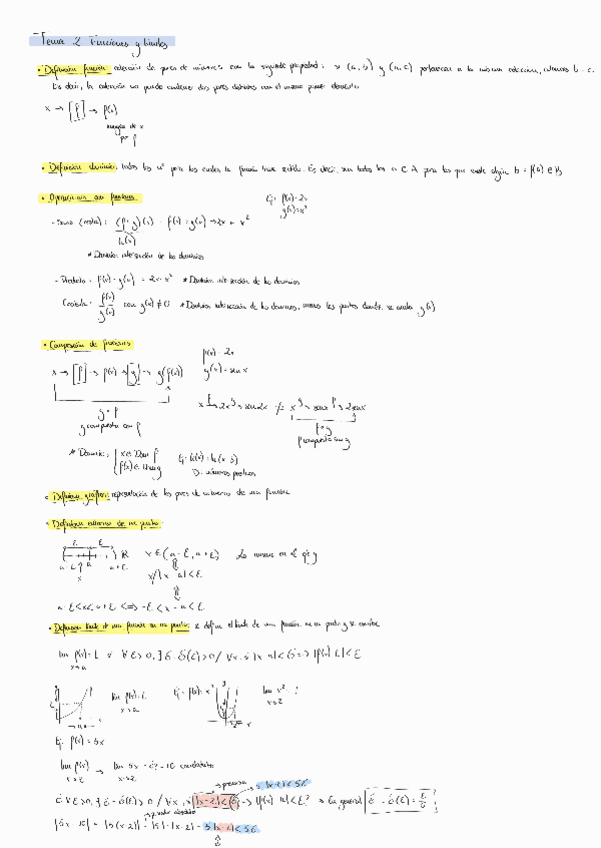 Tema 2 Funciones y límites
• Definición función: colección de pares de números con la siguiente propiedad: si (a, b) y (a, c) pertenecen a la misma colección, entonces b = c.
Es decir, la colección no puede contener dos pares distintos con el mismo primer elemento
x → [f] → f(x)
imagen de x
por f
• Definición dominio: todos los nº para los cuales la función tiene sentido. Es decir, son todos los a ∈ A para los que existe algún b = f(a) ∈ B
• Operaciones con funciones
Ej: f(x) = 2x
g(x) = x²
- Suma (resta): (f + g)(x) = f(x) + g(x) → 2x + x²
h(x)
* Dominio: intersección de los dominios
- Producto: f(x) · g(x) = 2x · x² * Dominio: intersección de los dominios
Cociente: f(x)/g(x) con g(x) ≠ 0 * Dominio: intersección de los dominios, menos los puntos donde se anula g(x)
• Composición de funciones
f(x) = 2x
g(x) = sen x
x → [f] → f(x) → [g] → g(f(x))
g ∘ f
g compuesta con f
x → 2x → sen 2x ≠ x → sen x → 2 sen x
f ∘ g
f compuesta con g
* Dominio: { x ∈ Dom f
f(x) ∈ Dom g
• Definición gráfica: representación de los pares de números de una función
• Definición entorno de un punto
x ∈ (a - ε, a + ε)
|x - a| < ε
a - ε < x < a + ε <=> -ε < x - a < ε
• Definición límite de una función en un punto: se define el límite de una función en un punto y se escribe
lim f(x) = L
x→a
∀ ε > 0, ∃ δ = δ(ε) > 0 / ∀x, si |x - a| < δ => |f(x) - L| < ε
lim f(x) = L
x→a
Ej: f(x) = x²
lim x² = ?
x→2
Ej: f(x) = 5x
lim f(x) → lim 5x = ? = 10 candidato
x→2 x→2
¿∀ ε > 0, ∃ δ = δ(ε) > 0 / ∀x, si |x - 2| < δ => |f(x) - 10| < ε?
|5x - 10| = |5(x - 2)| = |5| · |x - 2| = 5|x - 2| < 5δ